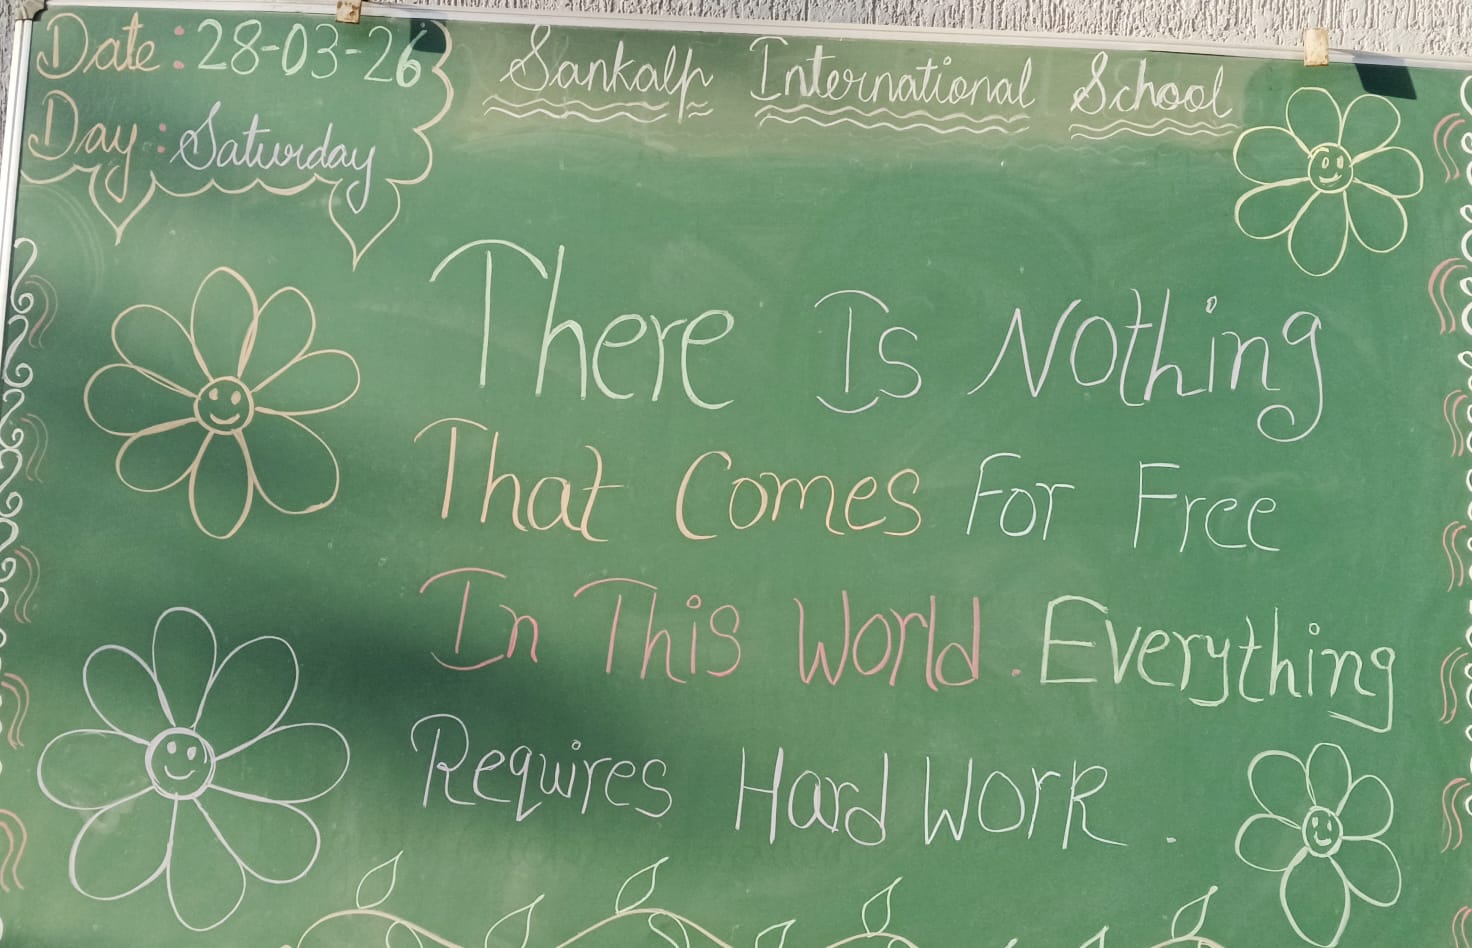 Date: 28-03-26
Day: Saturday
Sankalp International School
There Is Nothing
That Comes For Free
In This World. Everything
Requires Hard Work.